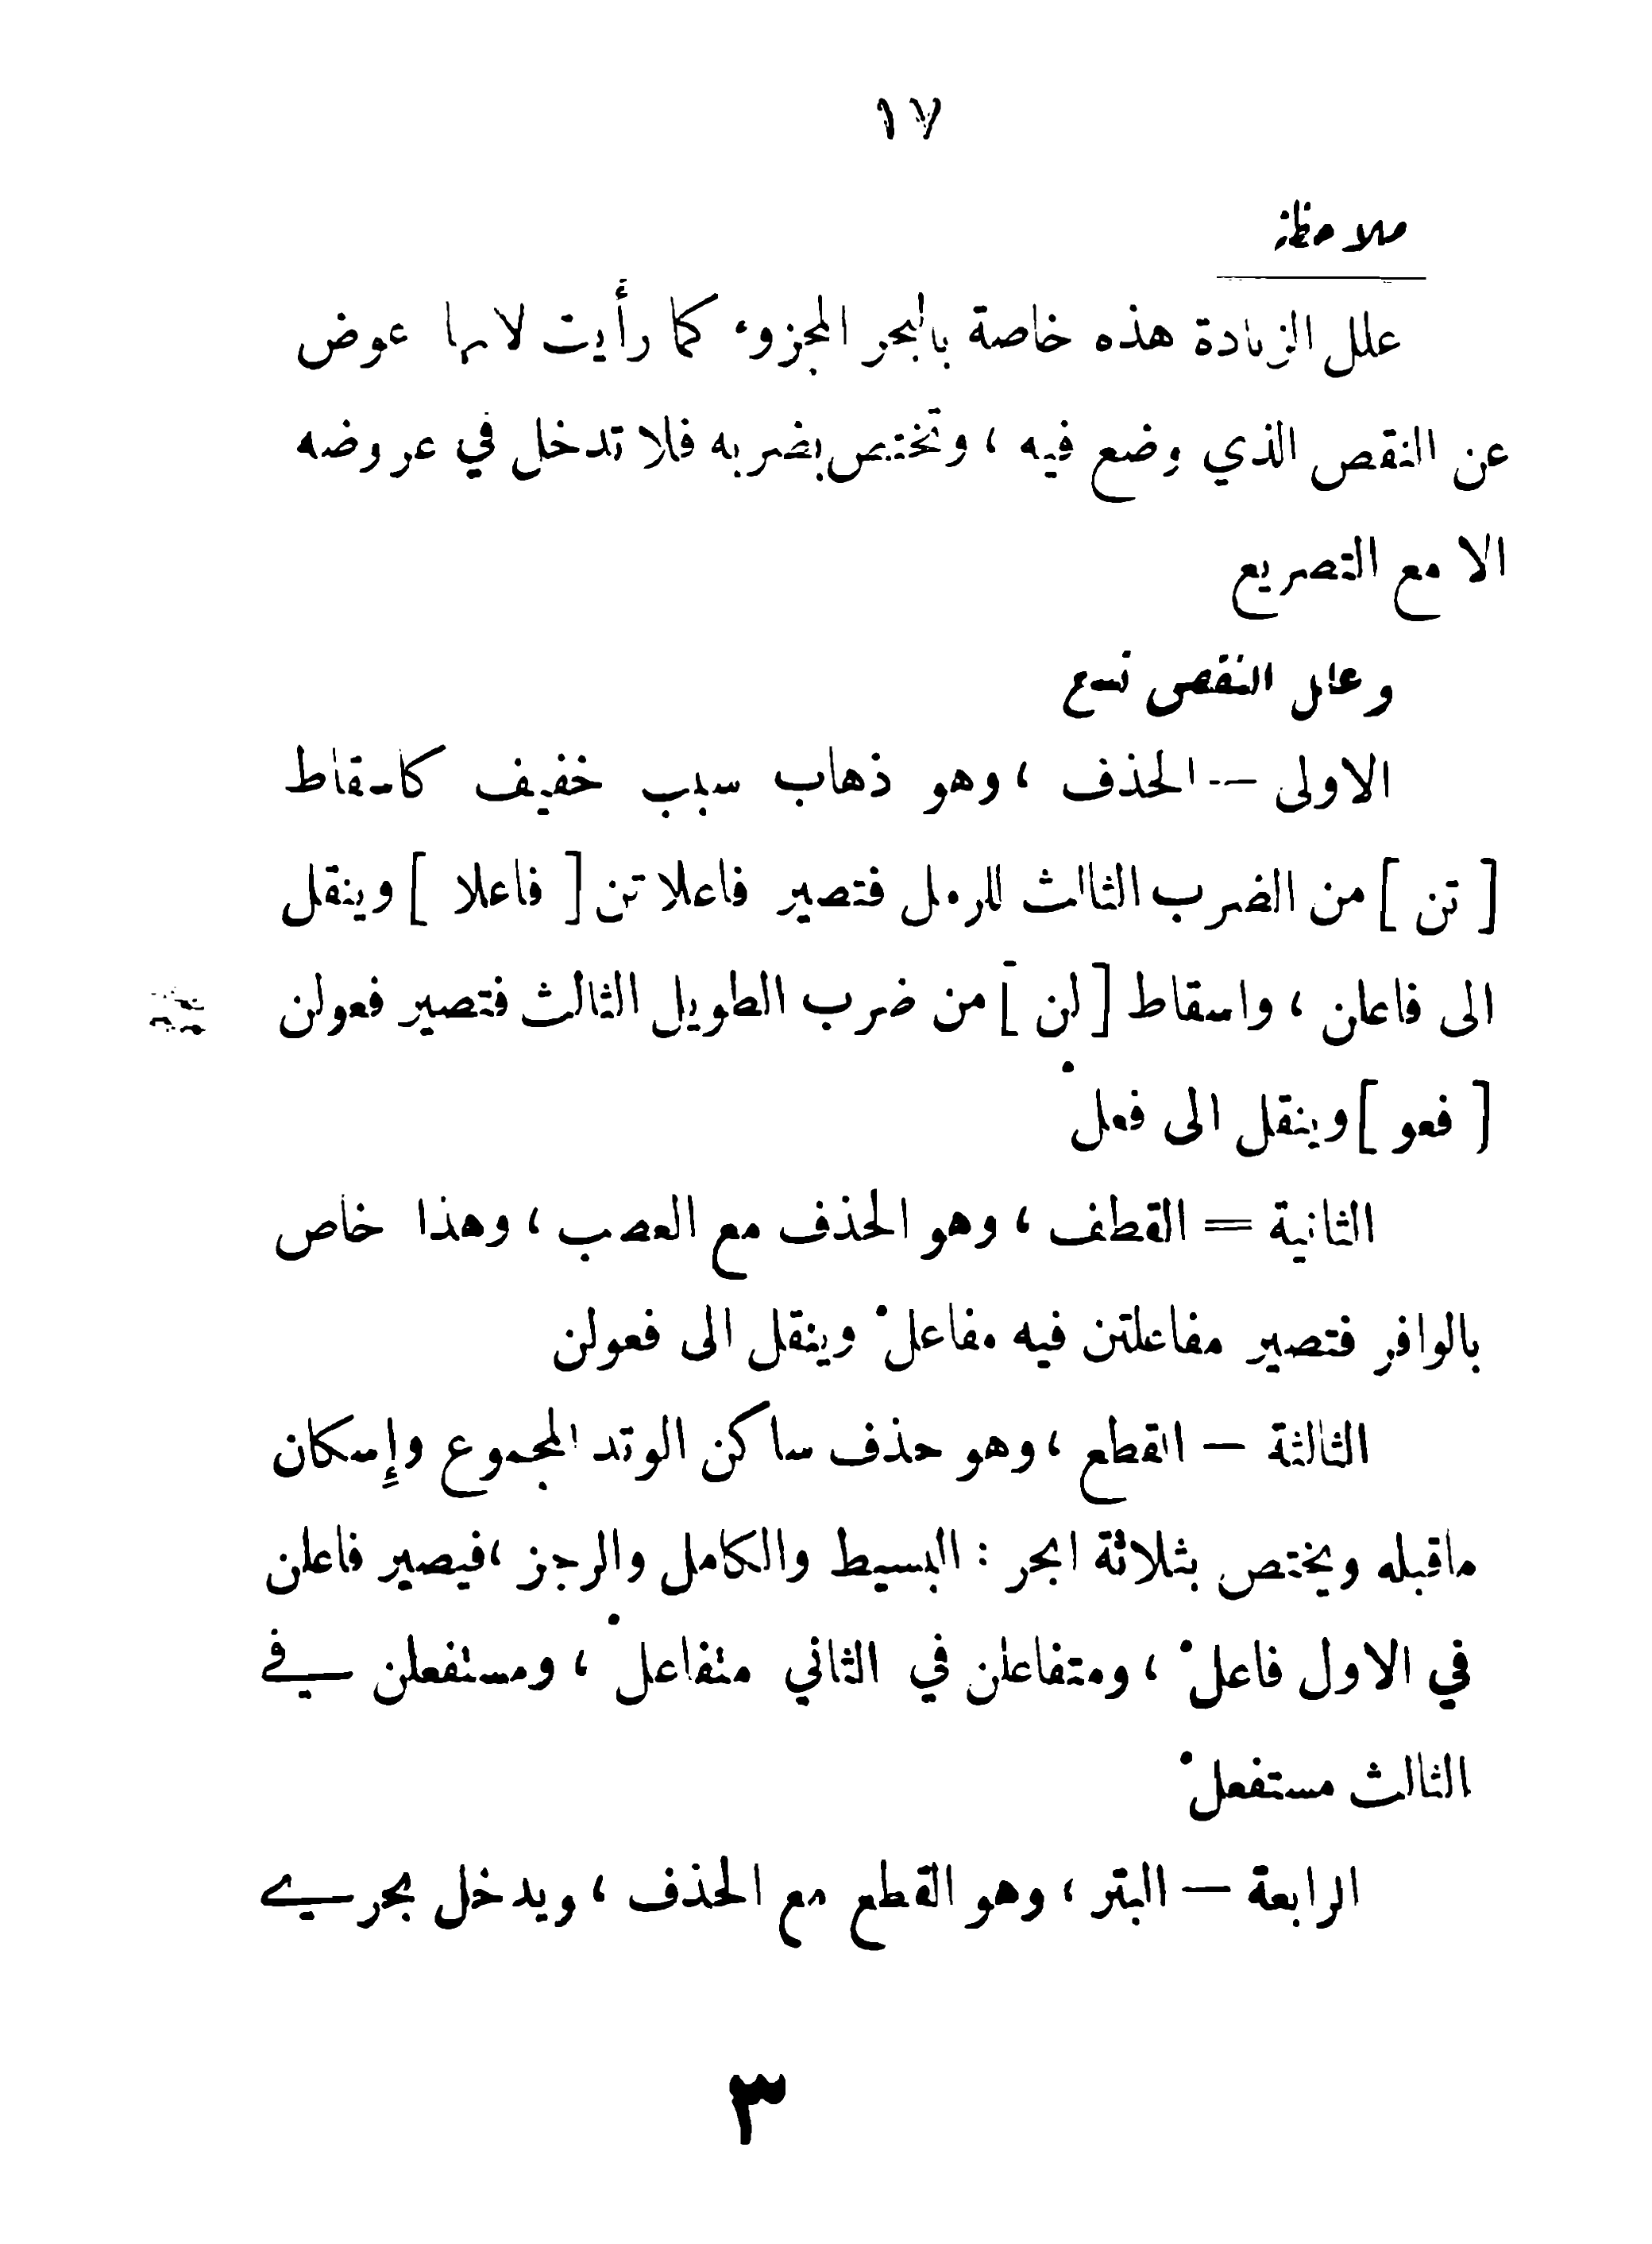 ١٧
ملاحظة
علل الزيادة هذه خاصة بالبحر المجزوء كما رأيت لانها عوض
عن النقص الذي وضع فيه ، وتختص بضربه فلا تدخل في عروضه
الا مع التصريع
وعلل النقص تسع
الاولى -- الحذف ، وهو ذهاب سبب خفيف كاسقاط
[ تن ] من الضرب الثالث للرمل فتصير فاعلاتن [ فاعلا ] وينقل
الى فاعلن ، واسقاط [ لن ] من ضرب الطويل الثالث فتصير فعولن
[ فعو ] وينقل الى فعلْ
الثانية = القطف ، وهو الحذف مع العصب ، وهذا خاص
بالوافر فتصير مفاعلتن فيه مفاعلْ وينقل الى فعولن
الثالثة — القطع ، وهو حذف ساكن الوتد المجموع وإسكان
ماقبله ويختص بثلاثة ابحر : البسيط والكامل والرجز ،فيصير فاعلن
في الاول فاعلْ ، ومتفاعلن في الثاني متفاعلْ ، ومستفعلن في
الثالث مستفعلْ
الرابعة — البتر ، وهو القطع مع الحذف ، ويدخل بحري
٣